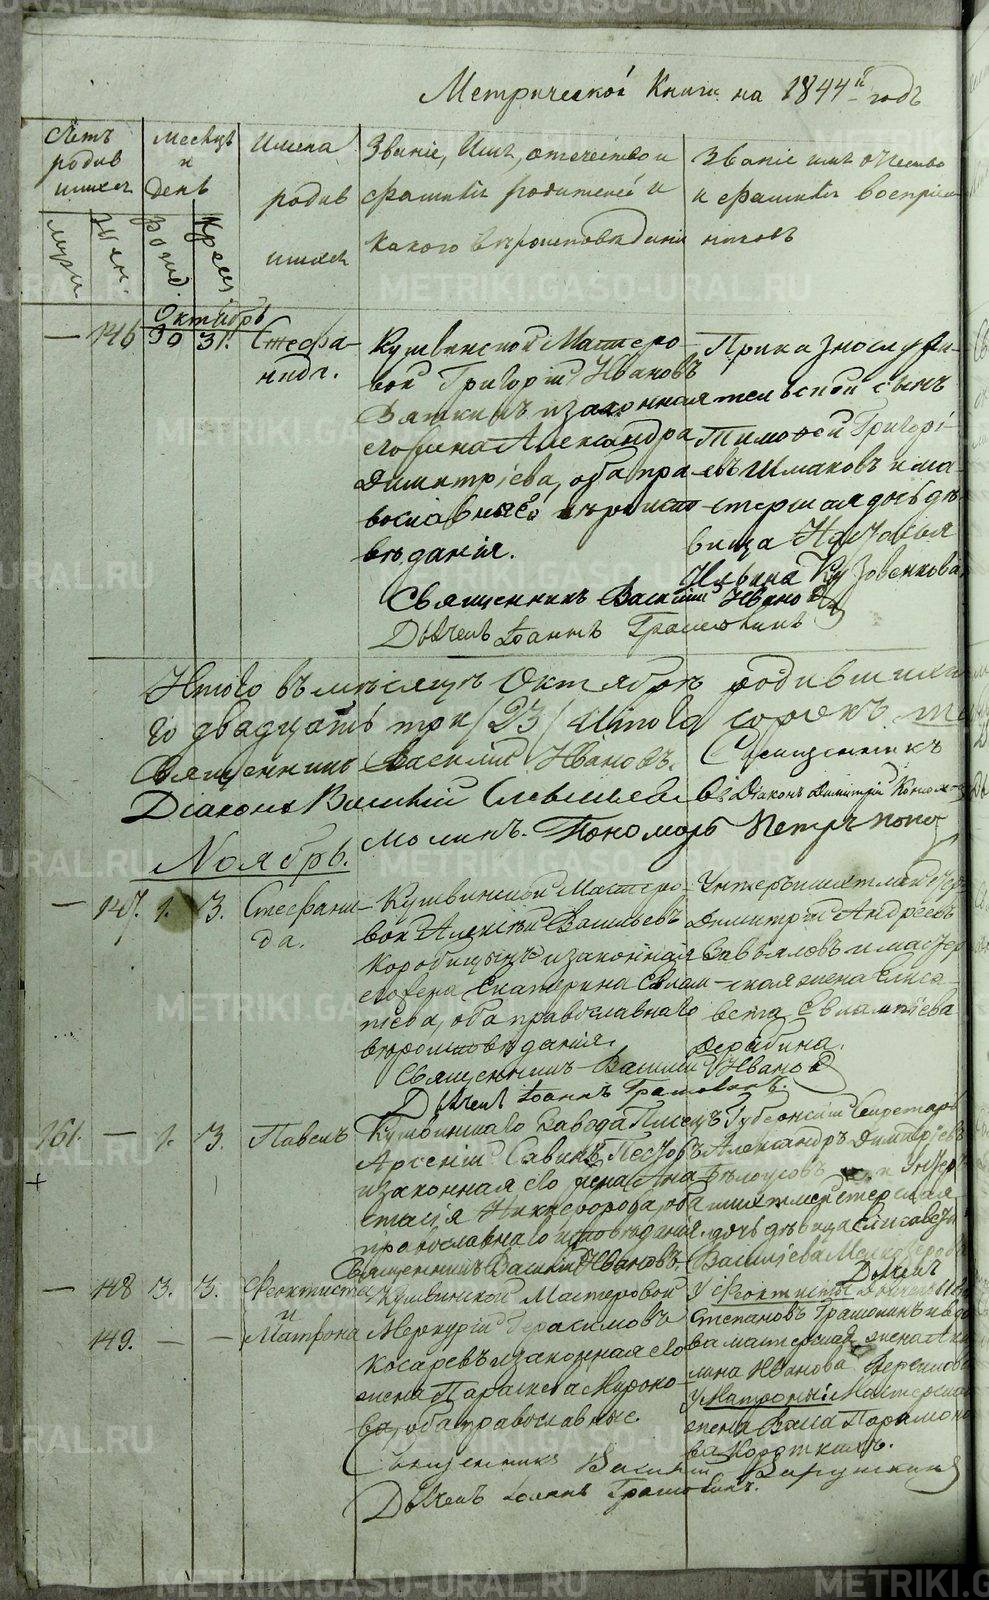 Метрической Книги на 1844й годъ
Счетъ родив шихся
Муж. Жен.
Месяцъ и день
Рожд. Крещ.
Имена
родив
шихся
Званіе, Имя, отечество и
фамилія родителей и
какого вѣроисповеданія
Званіе имя отчество
и фамилія воспріем
никовъ
Октябрь
— 146 30 31. Стефа-
нида.
Кушвинской Мастеро-
вой Григорій Ивановъ
Вяткинъ и законная
его жена Александра
Димитріева, оба пра-
вославнаго вѣроиспо
вѣданія.
Приказнослужи-
тельской сынъ
Тимофей Григорі-
евъ Шмаковъ и ма-
стерская дочь дѣ-
вица Наталья
Ильина Кузовенкова
Священникъ Василій Ивановъ
Дьячекъ Іоаннъ Грамолинъ
Итого въ мѣсяцѣ Октябрѣ родившихся
го двадцать три /23/ Итого сорокъ
Священникъ Василій Ивановъ. Священникъ
Діаконъ Василій Діаконъ Димитрій
Пономарь Петръ Попо
Ноябрь.
— 147. 1. 3. Стефани-
да.
Кушвинской Мастеро-
вой Алексѣй Васильевъ
Коробицынъ и законная
его жена Екатерина Евлам-
піева, оба православнаго
вѣроисповѣданія.
Унтеръшихтмейстер
Димитрій Андреевъ
Завьяловъ и мастер
ская жена Елиса
вета Евлампіева
Дерябина.
Священникъ Василій Ивановъ
Дьячекъ Іоаннъ Грамолинъ.
161. — 1. 3. Павелъ
Кушвинскаго Завода Писецъ
Арсеній Савинъ Пестовъ
и законная его жена Ана
стасія Никифорова, оба
православнаго исповѣданія.
Губернскій Секретарь
Александръ Димитріевъ
Бѣлоусовъ и Унтер
шихтмейстерская
дочь дѣвица Елисавета
Васильева
Священникъ Василій Ивановъ.
Дьячекъ
— 148 3. 3. Феоктиста
и
149. — — Матрона
Кушвинской Мастеровой
Меркурій Герасимовъ
Косаревъ и законная его
жена Параскева Мироно
ва, оба православные.
У Феоктисты Дьячекъ
Степановъ Грамолинъ и вдо
ва мастерская жена Аки
лина Иванова
У Матроны Мастерская
жена Васса Парамоно
ва Короткихъ.
Священникъ Василій
Дьячекъ Іоаннъ Грамолинъ.
METRIKI.GASO-URAL.RU